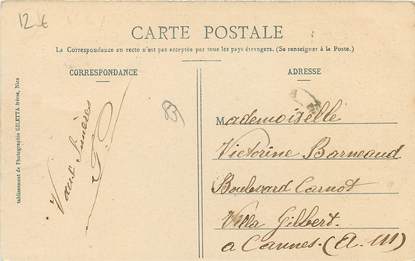 12 €
CARTE POSTALE
La Correspondance au recto n'est pas acceptée par tous les pays étrangers. (Se renseigner à la Poste.)
CORRESPONDANCE
ADRESSE
Etablissement de Photographie GILETTA frères, Nice
Vœux sincères
Mademoiselle
Victorine Borneaud
Boulevard Carnot
Villa Gilbert.
a Cannes. (A. M)